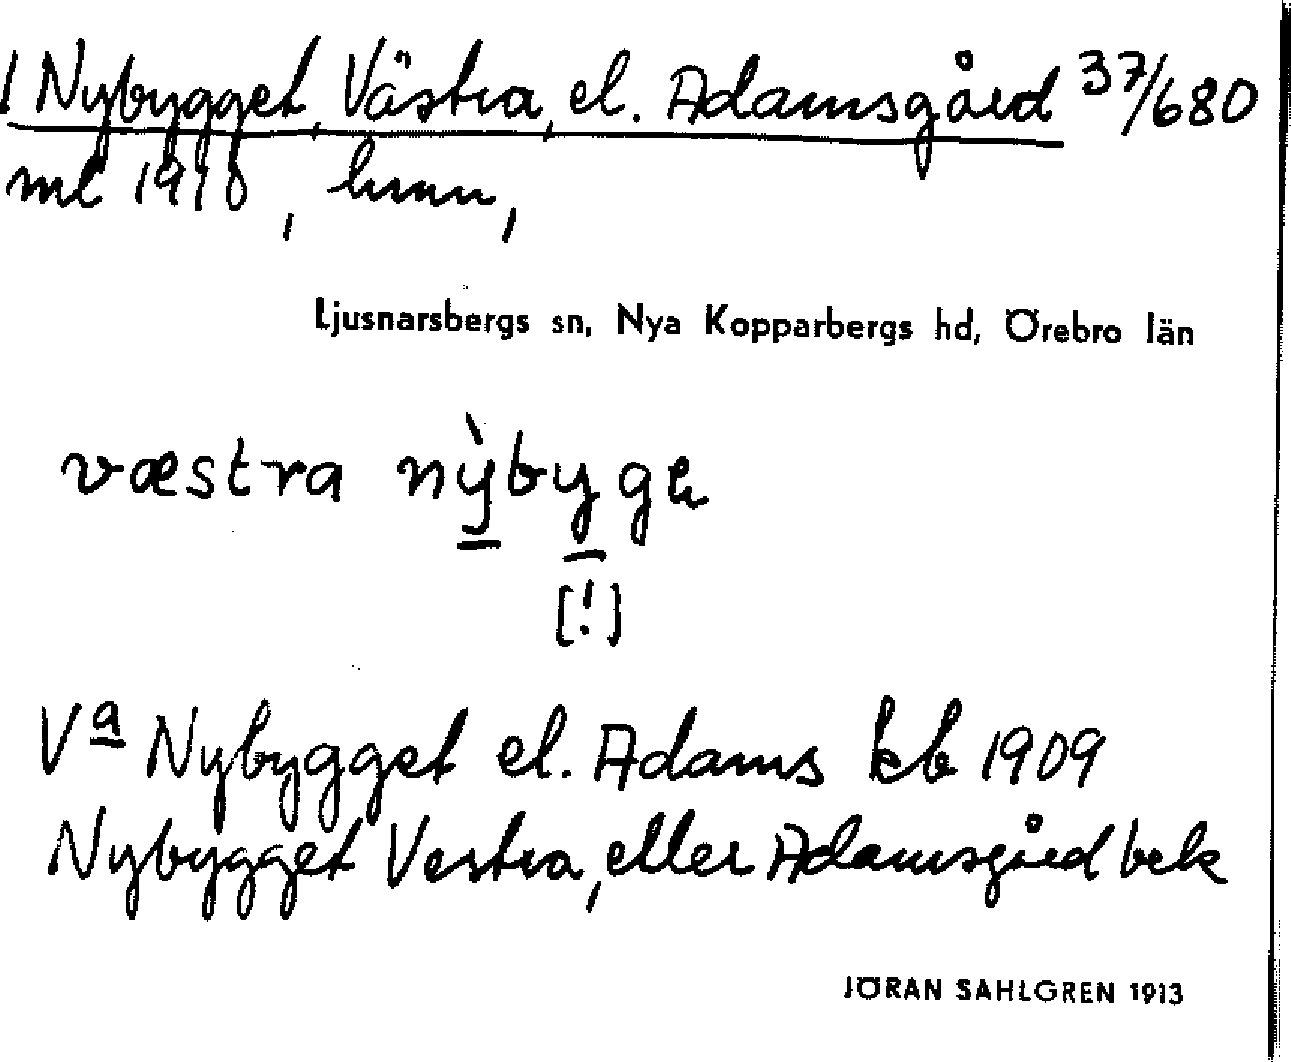 1 Nybygget, Västra, el. Adamsgård 37/680
ml 1910, hmn,
Ljusnarsbergs sn, Nya Kopparbergs hd, Örebro län
væstra nỳbyge
[!]
Vᵃ Nybygget el. Adams kb 1909
Nybygget Vestra, eller Adamsgård bek
JÖRAN SAHLGREN 1913